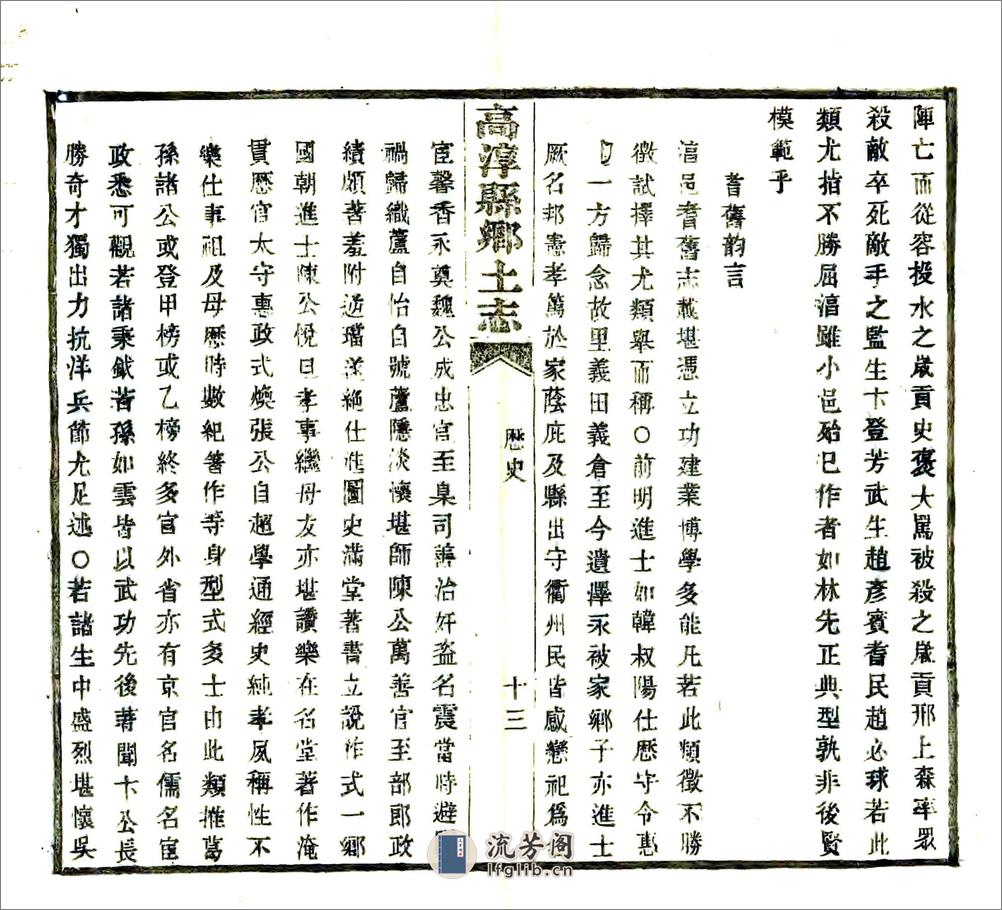 陣亡而從容投水之歲貢史褒大罵被殺之歲貢邢上森率眾
殺敵卒死敵手之監生卞登芳武生趙彥賓耆民趙必球若此
類尤指不勝屈湻雖小邑殆已作者如林先正典型孰非後賢
模範乎
耆舊韵言
湻邑耆舊志載堪憑立功建業博學多能凡若此類徵不勝
徵試擇其尤類舉而稱○前明進士如韓叔陽仕歷守令惠
一方歸念故里義田義倉至今遺澤永被家鄉子亦進士
厥名邦憲孝萬於家蔭庇及縣出守衢州民皆感戀祀爲
高淳縣鄉土志
歷史
十三
宦馨香永奠魏公成忠官至臬司善治奸盗名震當時避
禍歸織蘆自怡自號蘆隱淡懷堪師陳公萬善官至部郎政
績頗著羞附逆璫遂絕仕進圖史滿堂著書立說作式一鄉
國朝進士陳公悅旦孝事繼母友亦堪讚樂在名堂著作淹
貫歷官太守專政式煥張公自超學通經史純孝夙稱性不
樂仕事祖及母歷時數紀箸作等身型式多士由此類推葛
孫諸公或登甲榜或乙榜終多官外省亦有京官名儒名宦
政悉可觀若諸秉鉞若孫如雲皆以武功先後著聞卞公長
勝奇才獨出力抗洋兵節尤足述○若諸生中盛烈堪懷吳
流芳阁
lfglib.cn